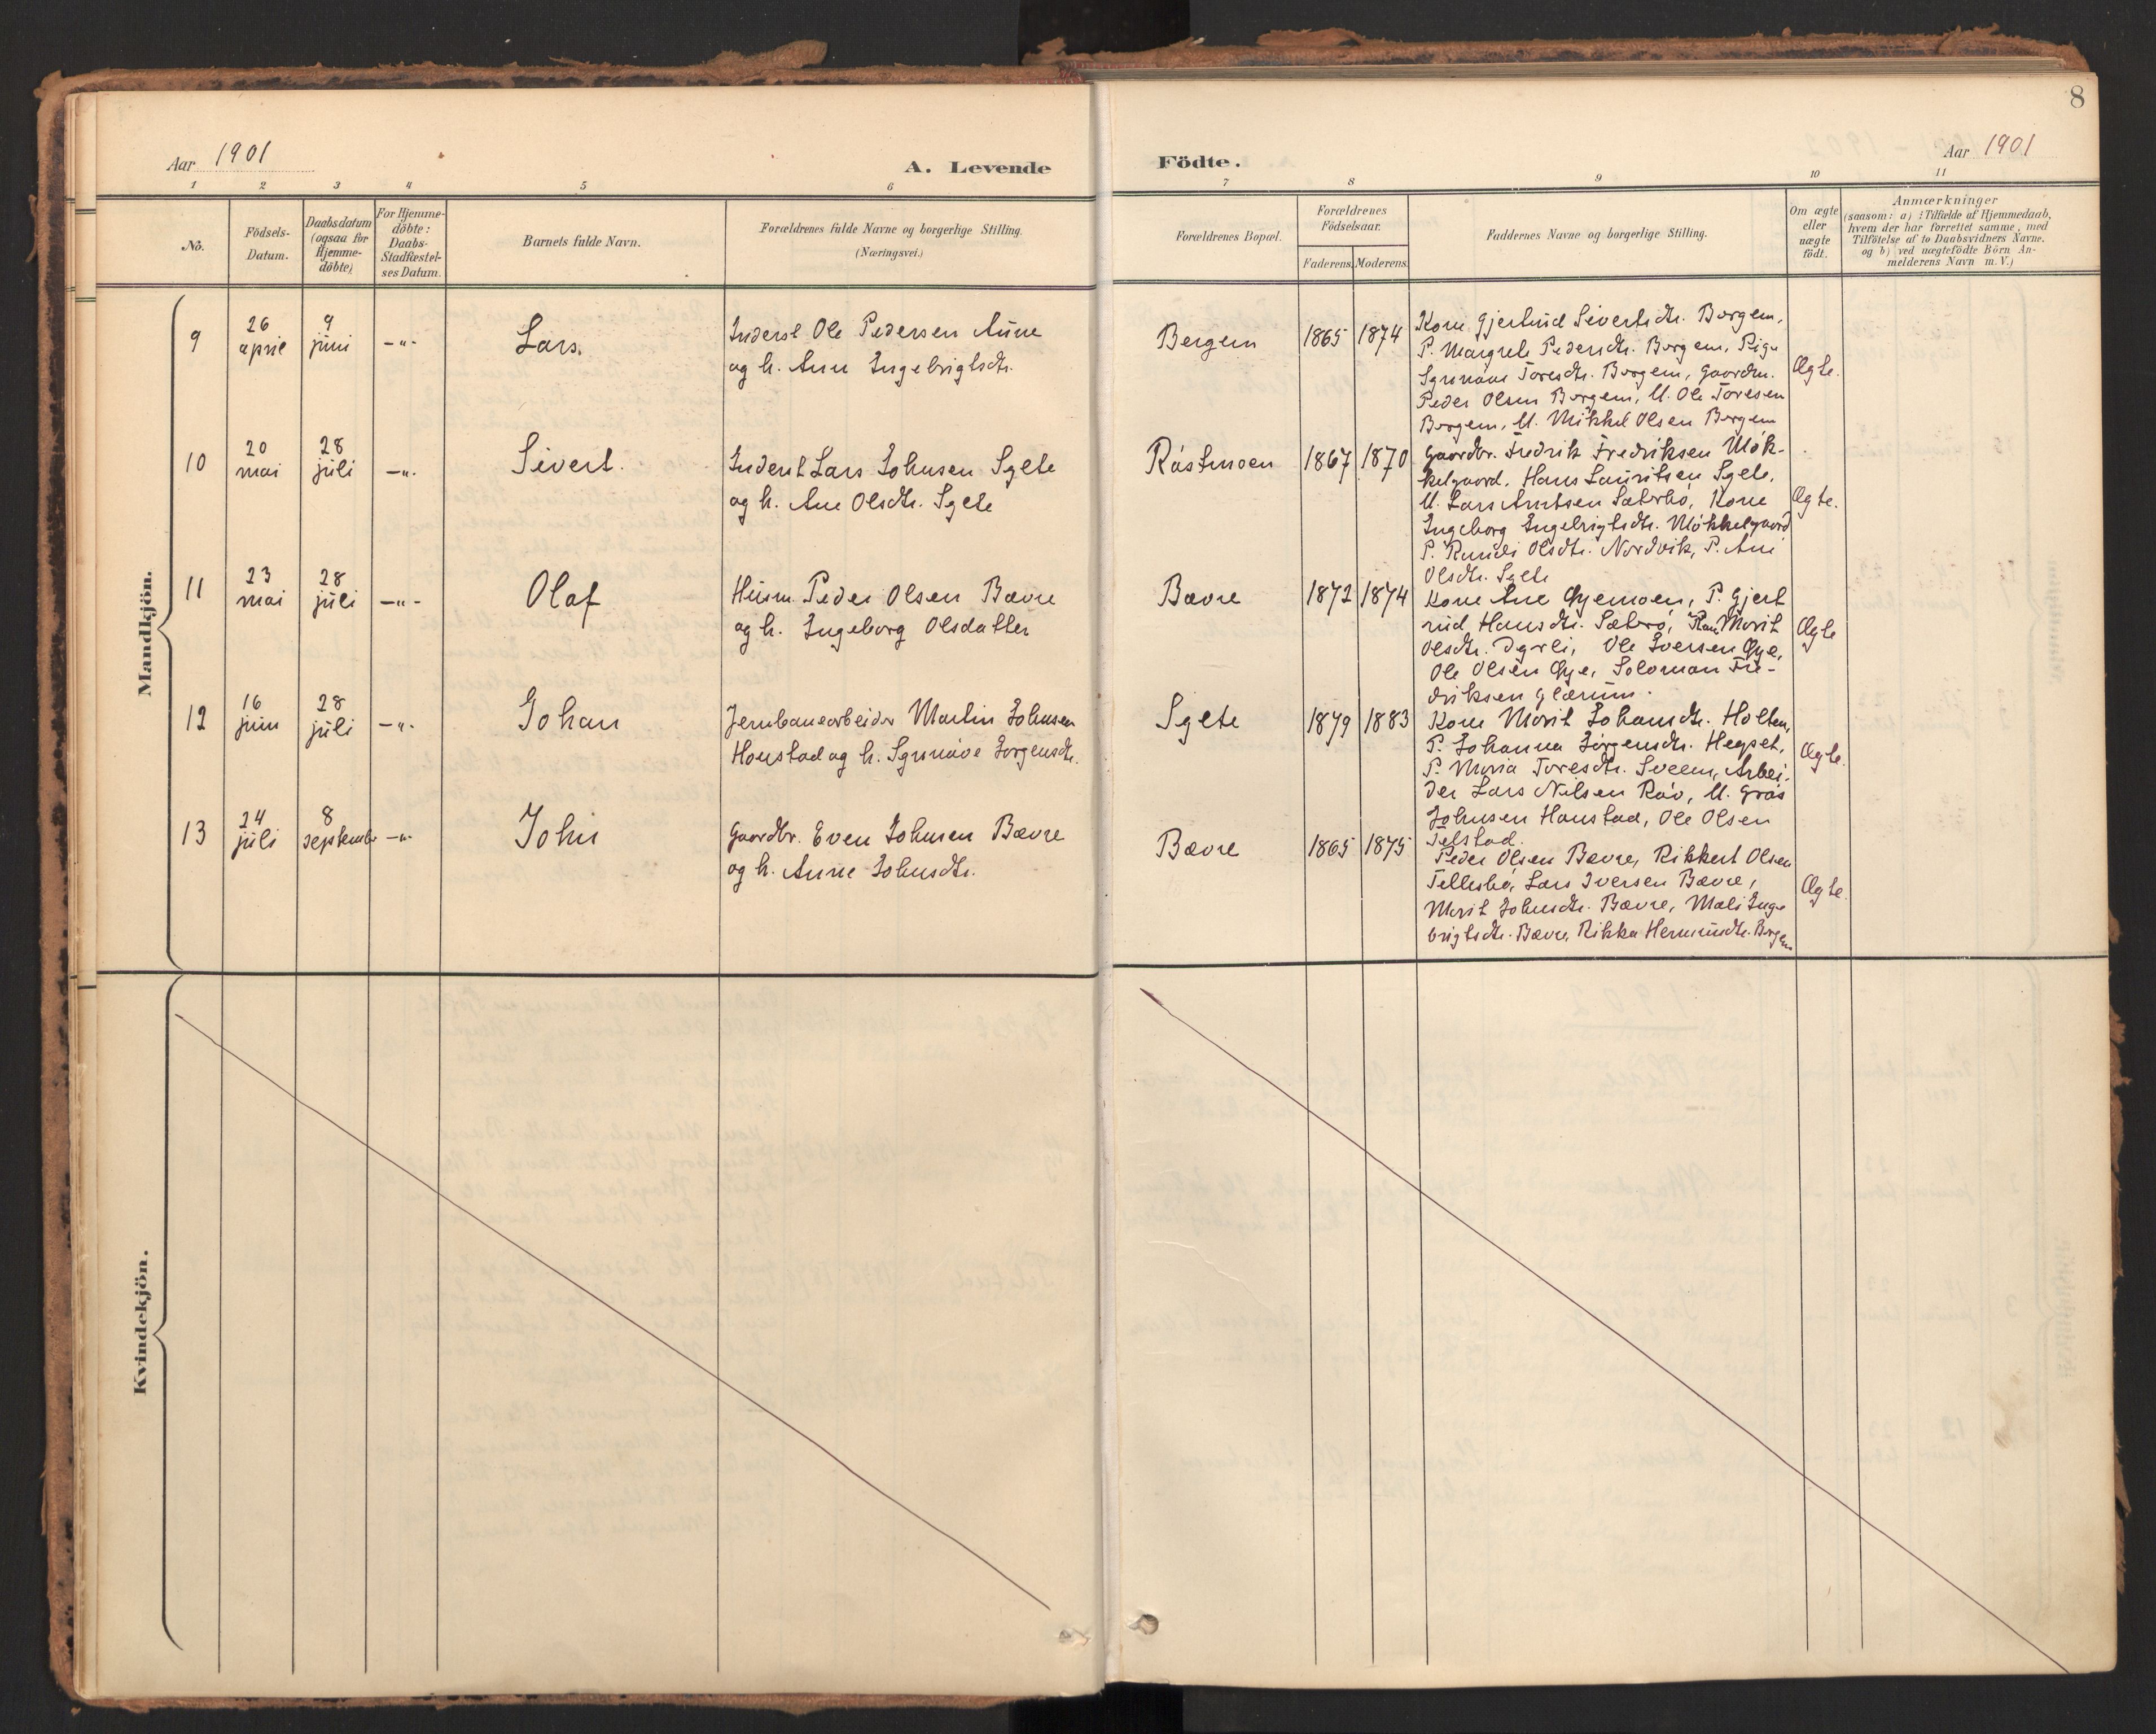 8
Aar 1901
A. Levende
Födte.
Aar 1901
1 2 3 4 5 6 7 8 9 10 11
No.
Födsels-
Datum.
Daabsdatum
(ogsaa for
Hjemme-
döbte)
For Hjemme-
döbte:
Daabs-
Stadfæstel-
ses Datum.
Barnets fulde Navn.
Forældrenes fulde Navne og borgerlige Stilling.
(Næringsvei.)
Forældrenes Bopæl.
Forældrenes
Födselsaar.
Faderens. Moderens.
Faddernes Navne og borgerlige Stilling.
Om ægte
eller
nægte
födt.
Anmærkninger
(saasom: a) i Tilfælde af Hjemmedaab,
hvem der har forrettet samme, med
Tilföielse af to Daabsvidners Navne,
og b) ved nægtefödte Börn An-
melderens Navn m. V.)
Mandkjön.
9
26
april
9
juni
-"-
Lars.
Inderst Ole Pedersen Aune
og h. Ane Ingebrigtsdtr.
Bergem
1865 1874
Kone Gjertrud Sivertsdtr. Bergem,
P. Margrete Pedersdtr. Bergem, Pige
Synnøve Toresdtr. Bergem, Gaardm.
Peder Olsen Bergem, U. Ole Toresen
Bergem, U. Mikkel Olsen Bergem
Ægte.
10
20
mai
28
juli
-"-
Sivert.
Inderst Lars Johnsen Sylte
og h. Ane Olsdtr. Sylte
Røstmoen
1867 1870
Gaardbr. Fredrik Fredriksen Møk-
kelgaard, Hans Lauritsen Sylte,
U. Lars Arntsen Sæterbø, Kone
Ingeborg Ingebrigtsdtr. Møkkelgaard
P. Olsdtr. Nordvik, P. Ane
Olsdtr. Sylte
Ægte.
11
23
mai
28
juli
-"-
Olaf
Husm. Peder Olsen Bævre
og h. Ingeborg Olsdatter
Bævre
1872 1874
Kone Ane Øyemoen, P. Gjert
rud Hansdtr. Sæterø, Kone Marit
Olsdtr. Ole Iversen Øye,
Ole Olsen Øye, Solomon Fre-
driksen Glærum.
Ægte
12
16
juni
28
juli
-"-
Johan
Jernbanearbeider Martin Johnsen
Honstad og h. Synnøve Jørgensdtr.
Sylte
1879 1883
Kone Marit Johansdtr. Holten,
P. Johanna Jørgensdtr. Hegset,
P. Maria Toresdtr. Sveen, Arbei-
der Lars Nilsen Røv, U. Græs
Johnsen Honstad, Ole Olsen
Telstad.
Ægte.
13
24
juli
8
september
-"-
John
Gaardbr. Even Johnsen Bævre
og h. Anne Johnsdtr.
Bævre
1865 1875
Peder Olsen Bævre, Rikkert Olsen
Tellesbø, Lars Iversen Bævre,
Marit Johnsdtr. Bævre, Mali Inge
brigtsdtr. Bævre, Rikka Hermundtr. Bergem
Ægte.
Kvindekjön.